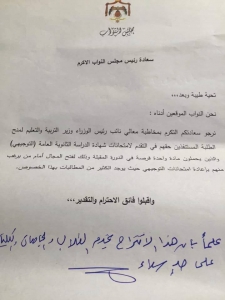 مجلس النواب
سعادة رئيس مجلس النواب الاكرم
تحية طيبة وبعد،،،
نحن النواب الموقعين أدناه :
نرجو سعادتكم التكرم بمخاطبة معالي نائب رئيس الوزراء وزير التربية والتعليم لمنح
الطلبة المستنفذين حقهم في التقدم لامتحانات شهادة الدراسة الثانوية العامة (التوجيهي)
والذين يحملون مادة واحدة فرصة في الدورة المقبلة وذلك لفتح المجال أمام من يرغب
منهم بإعادة امتحانات التوجيهي حيث يوجد الكثير من المطالبات بهذا الخصوص.
واقبلوا فائق الاحترام والتقدير،،،
علماً بان هذا الاقتراح يخدم الطلاب والجامعات والكليات
على حد سواء